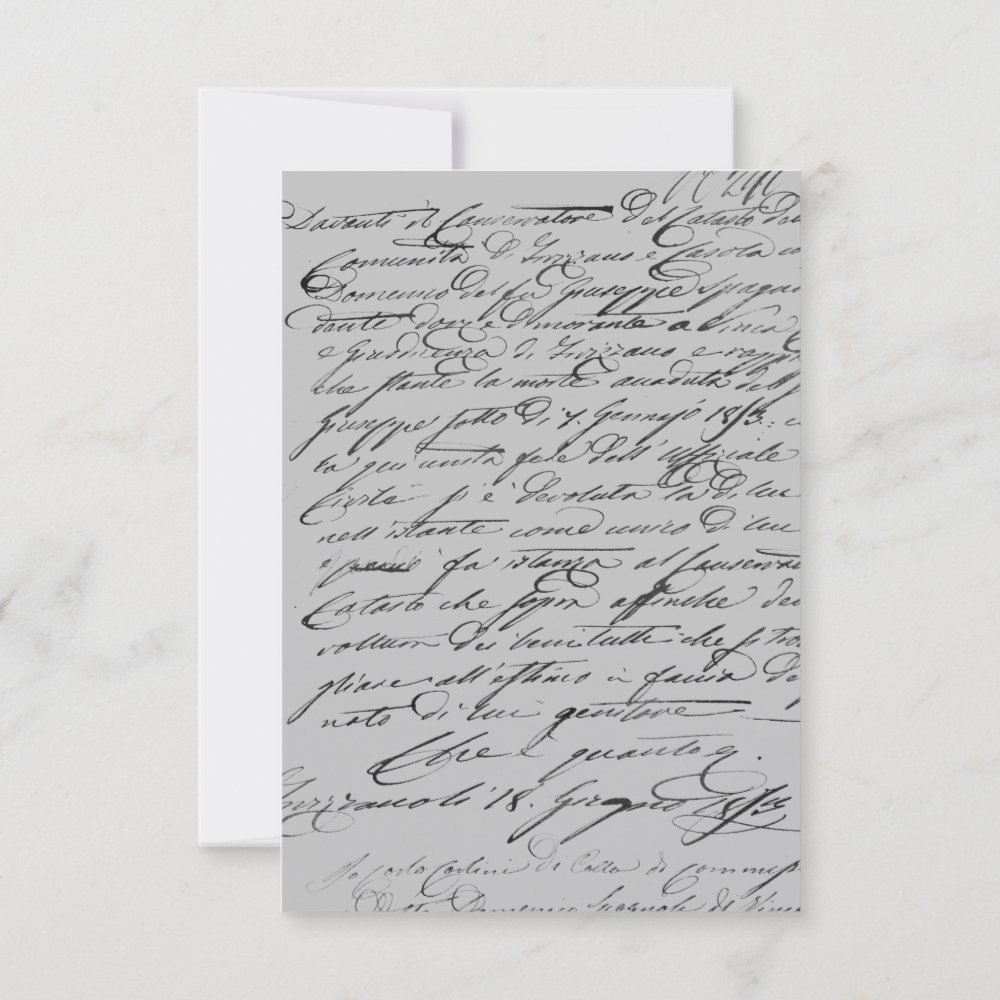 Davanti il Conservatore del Catasto del
Comunità di Fivizzano e Casola
Domenico del fu Giuseppe Spagn
dente dimorante a Vinca
e Giusdicenza di Fivizzano e rapp
che stante la morte accaduta del
Giuseppe sotto dì 7. Gennajo 18
la qui unita fede dell'Uffiziale
Civile si è devoluta la di lui
nell'istante come unico di lui
e fa istanza al Conservat
Catasto che sopra affinche
voltura dei beni tutti che si trov
gliare all'estimo in faccia
nato di lui genitore
Che è quanto
Fivizzano li 18. Giugno 18
Io Carlo di Colla di commiss
Domenico di Vinca